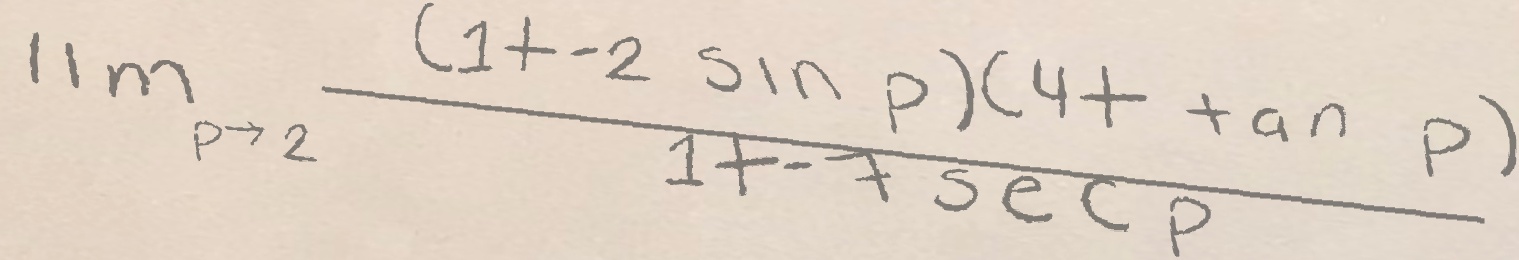 \lim_{p \to 2} \frac{(1+-2 \sin p)(4+ \tan p)}{1+-7 \sec p}